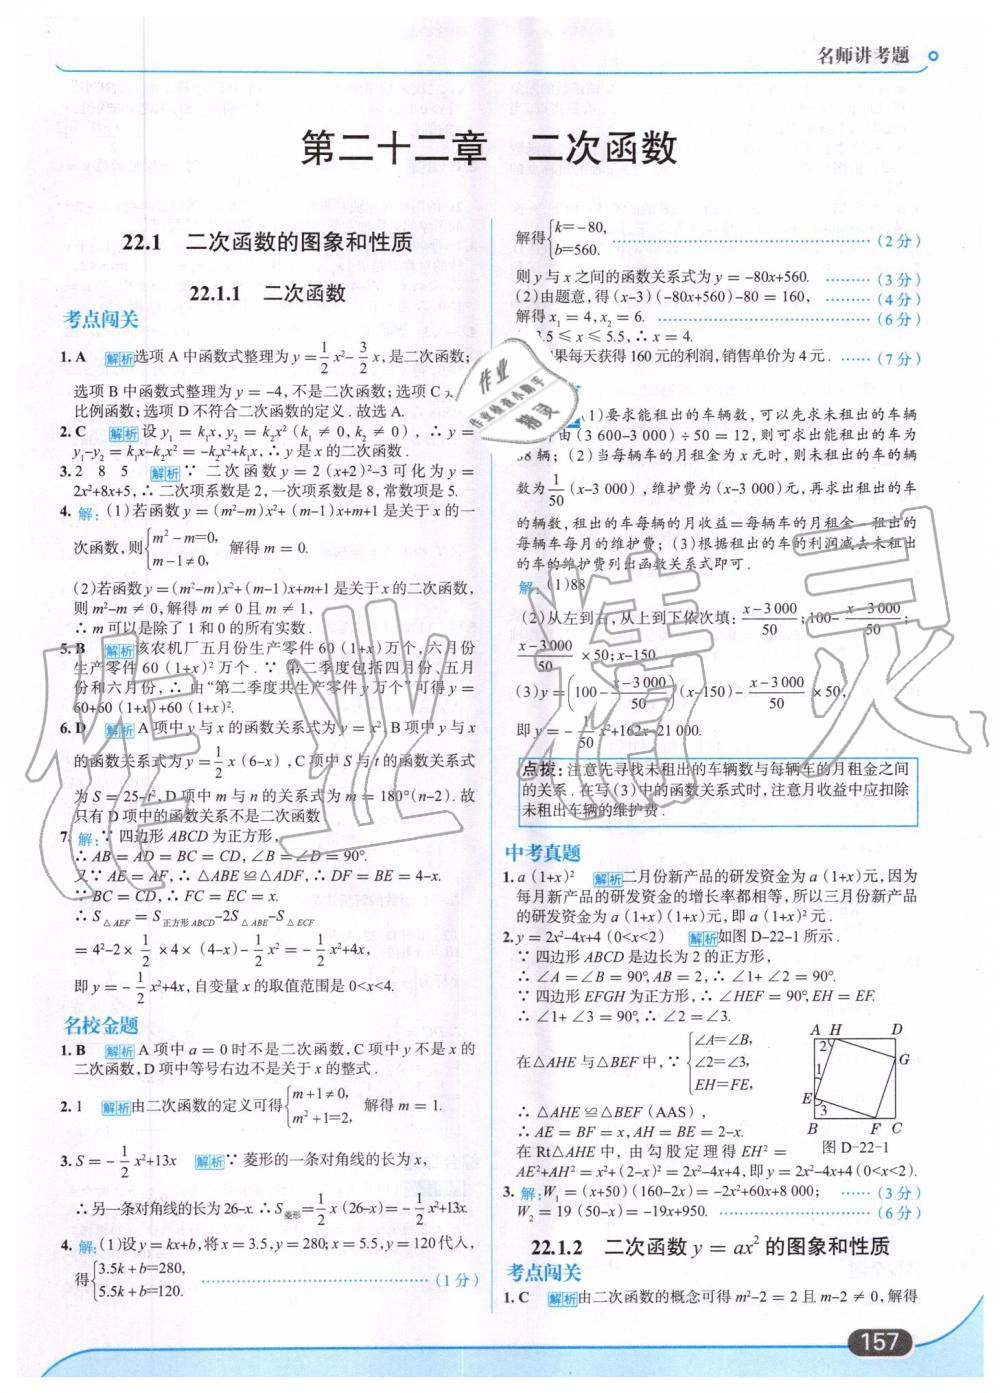 名师讲考题
第二十二章 二次函数
22.1 二次函数的图象和性质
22.1.1 二次函数
考点闯关
1. A 解析 选项 A 中函数式整理为 y = 1/2 x²- 3/2 x,是二次函数;
选项 B 中函数式整理为 y = -4,不是二次函数;选项 C
比例函数;选项 D 不符合二次函数的定义. 故选 A.
2. C 解析 设 y₁ = k₁x, y₂ = k₂x² (k₁ ≠ 0, k₂ ≠ 0), ∴ y =
y₁-y₂ = k₁x-k₂x² = -k₂x²+k₁x, ∴ y 是 x 的二次函数.
3. 2 8 5 解析 ∵ 二次函数 y = 2(x+2)²-3 可化为 y =
2x²+8x+5, ∴ 二次项系数是 2,一次项系数是 8,常数项是 5.
4. 解: (1)若函数 y = (m²-m)x²+ (m-1)x+m+1 是关于 x 的一
次函数,则 {m²-m=0, m-1≠0, 解得 m = 0.
(2)若函数 y = (m²-m)x²+(m-1)x+m+1 是关于 x 的二次函数,
则 m²-m ≠ 0,解得 m ≠ 0 且 m ≠ 1,
∴ m 可以是除了 1 和 0 的所有实数.
5. B 解析 该农机厂五月份生产零件 60 (1+x)万个,六月份
生产零件 60 (1+x)² 万个. ∵ 第二季度包括四月份、五月
份和六月份, ∴ 由“第二季度共生产零件 y 万个”可得 y =
60+60 (1+x)+60 (1+x)².
6. D 解析 A 项中 y 与 x 的函数关系式为 y = x²,B 项中 y 与 x
的函数关系式为 y = 1/2 x (6-x),C 项中 S 与 t 的函数关系式
为 S = 25-t²,D 项中 m 与 n 的关系式为 m = 180°(n-2). 故
只有 D 项中的函数关系不是二次函数.
7. 解: ∵ 四边形 ABCD 为正方形,
∴ AB = AD = BC = CD, ∠B = ∠D = 90°.
又∵ AE = AF, ∴ △ABE ≌△ADF, ∴ DF = BE = 4-x.
∵ BC = CD, ∴ FC = EC = x.
∴ S△AEF = S正方形ABCD-2S△ABE-S△ECF
= 4²-2× 1/2 ×4× (4-x)- 1/2 x² = - 1/2 x²+4x,
即 y = - 1/2 x²+4x,自变量 x 的取值范围是 0<x<4.
名校金题
1. B 解析 A 项中 a = 0 时不是二次函数,C 项中 y 不是 x 的
二次函数,D 项中等号右边不是关于 x 的整式.
2. 1 解析 由二次函数的定义可得 {m+1≠0, m²+1=2, 解得 m = 1.
3. S = - 1/2 x²+13x 解析 ∵ 菱形的一条对角线的长为 x,
∴ 另一条对角线的长为 26-x. ∴ S菱形 = 1/2 x (26-x) = - 1/2 x²+13x.
4. 解: (1)设 y = kx+b,将 x = 3.5, y = 280; x = 5.5, y = 120 代入,
得 {3.5k+b=280, 5.5k+b=120. ………… (1 分)
解得 {k=-80, b=560. ………… (2 分)
则 y 与 x 之间的函数关系式为 y = -80x+560. …… (3 分)
(2)由题意,得 (x-3) (-80x+560)-80 = 160, …… (4 分)
解得 x₁ = 4, x₂ = 6. ………… (6 分)
3.5 ≤ x ≤ 5.5, ∴ x = 4.
果每天获得 160 元的利润,销售单价为 4 元. …… (7 分)
(1)要求能租出的车辆数,可以先求未租出的车辆
由 (3 600-3 000) ÷ 50 = 12,则可求出能租出的车为
辆; (2)当每辆车的月租金为 x 元时,则未租出的车的辆
数为 1/50 (x-3 000),维护费为 (x-3000)元,再求出租出的车
的辆数,租出的车每辆的月收益 = 每辆车的月租金 - 租出的
每辆车每月的维护费; (3)根据租出的车的利润减去未租出
的车的维护费列出函数关系式即可.
解: (1)88
(2)从左到右,从上到下依次填: x-3 000/50 ; 100- x-3 000/50 ;
x-3 000/50 ×50; x-150
(3) y = (100- x-3 000/50)(x-150)- x-3 000/50 ×50,
即 y = - 1/50 x²+162x-21 000.
点拨: 注意先寻找未租出的车辆数与每辆车的月租金之间
的关系. 在写(3)中的函数关系式时,注意月收益中应扣除
未租出车辆的维护费.
中考真题
1. a (1+x)² 解析 二月份新产品的研发资金为 a (1+x)元,因为
每月新产品的研发资金的增长率都相等,所以三月份新产品
的研发资金为 a (1+x) (1+x)元,即 a (1+x)² 元.
2. y = 2x²-4x+4 (0<x<2) 解析 如图 D-22-1 所示.
∵ 四边形 ABCD 是边长为 2 的正方形,
∴ ∠A = ∠B = 90°, AB = 2, ∴ ∠1+ ∠2 = 90°.
∵ 四边形 EFGH 为正方形, ∴ ∠HEF = 90°, EH = EF.
∴ ∠1+ ∠3 = 90°, ∴ ∠2 = ∠3.
在△AHE 与△BEF 中, ∵ {∠A=∠B, ∠2=∠3, EH=FE,
∴ △AHE ≌△BEF (AAS),
∴ AE = BF = x, AH = BE = 2-x.
A H D
2
G
1
E
3
B F C
图 D-22-1
在 Rt△AHE 中, 由勾股定理得 EH² =
AE²+AH² = x²+ (2-x)² = 2x²-4x+4,即 y = 2x²-4x+4 (0<x<2).
3. 解: W₁ = (x+50) (160-2x) = -2x²+60x+8 000; …… (3 分)
W₂ = 19 (50-x) = -19x+950. …… (6 分)
22.1.2 二次函数 y = ax² 的图象和性质
考点闯关
1. C 解析 由二次函数的概念可得 m²-2 = 2 且 m-2 ≠ 0,解得
157
作业精灵